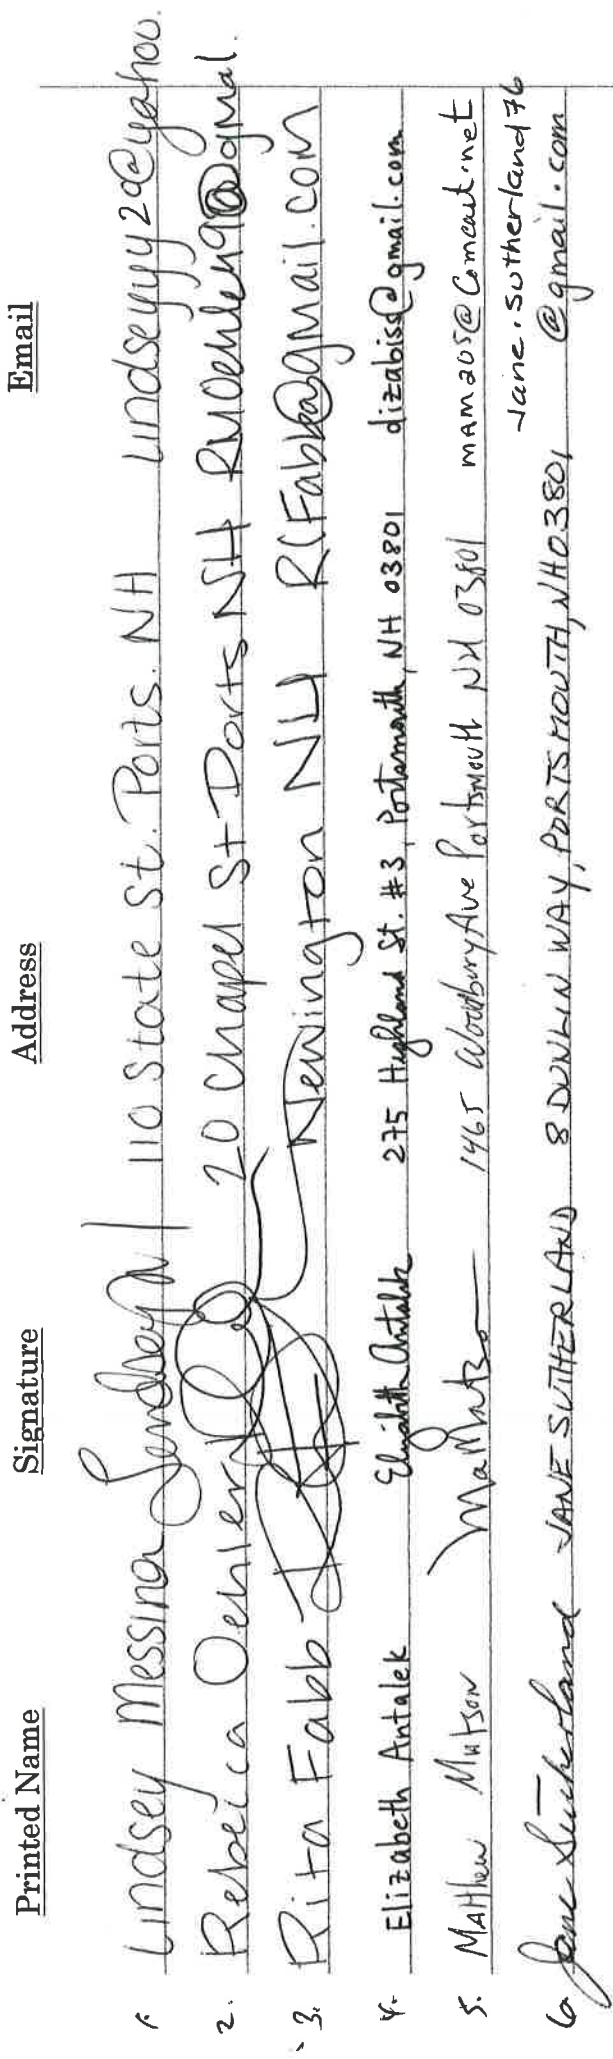 Printed Name Signature Address Email
1. Lindsey Messina 110 State St. Ports. NH lindseyyy20@yahoo.
2. Rebecca Oehler 20 Chapel St Ports NH RMOehler9@gmal.
3. Rita Fabb Newington NH RCFabb@gmail.com
4. Elizabeth Antalek Elizabeth Antalek 275 Highland St. #3, Portsmouth, NH 03801 dizabiss@gmail.com
5. Matthew Mutson 1465 Woodbury Ave Portsmouth NH 03801 MAM205@Comcast.net
Jane.sutherland76
6. Jane Sutherland JANE SUTHERLAND 8 DUNLIN WAY, PORTSMOUTH, NH 03801 @gmail.com